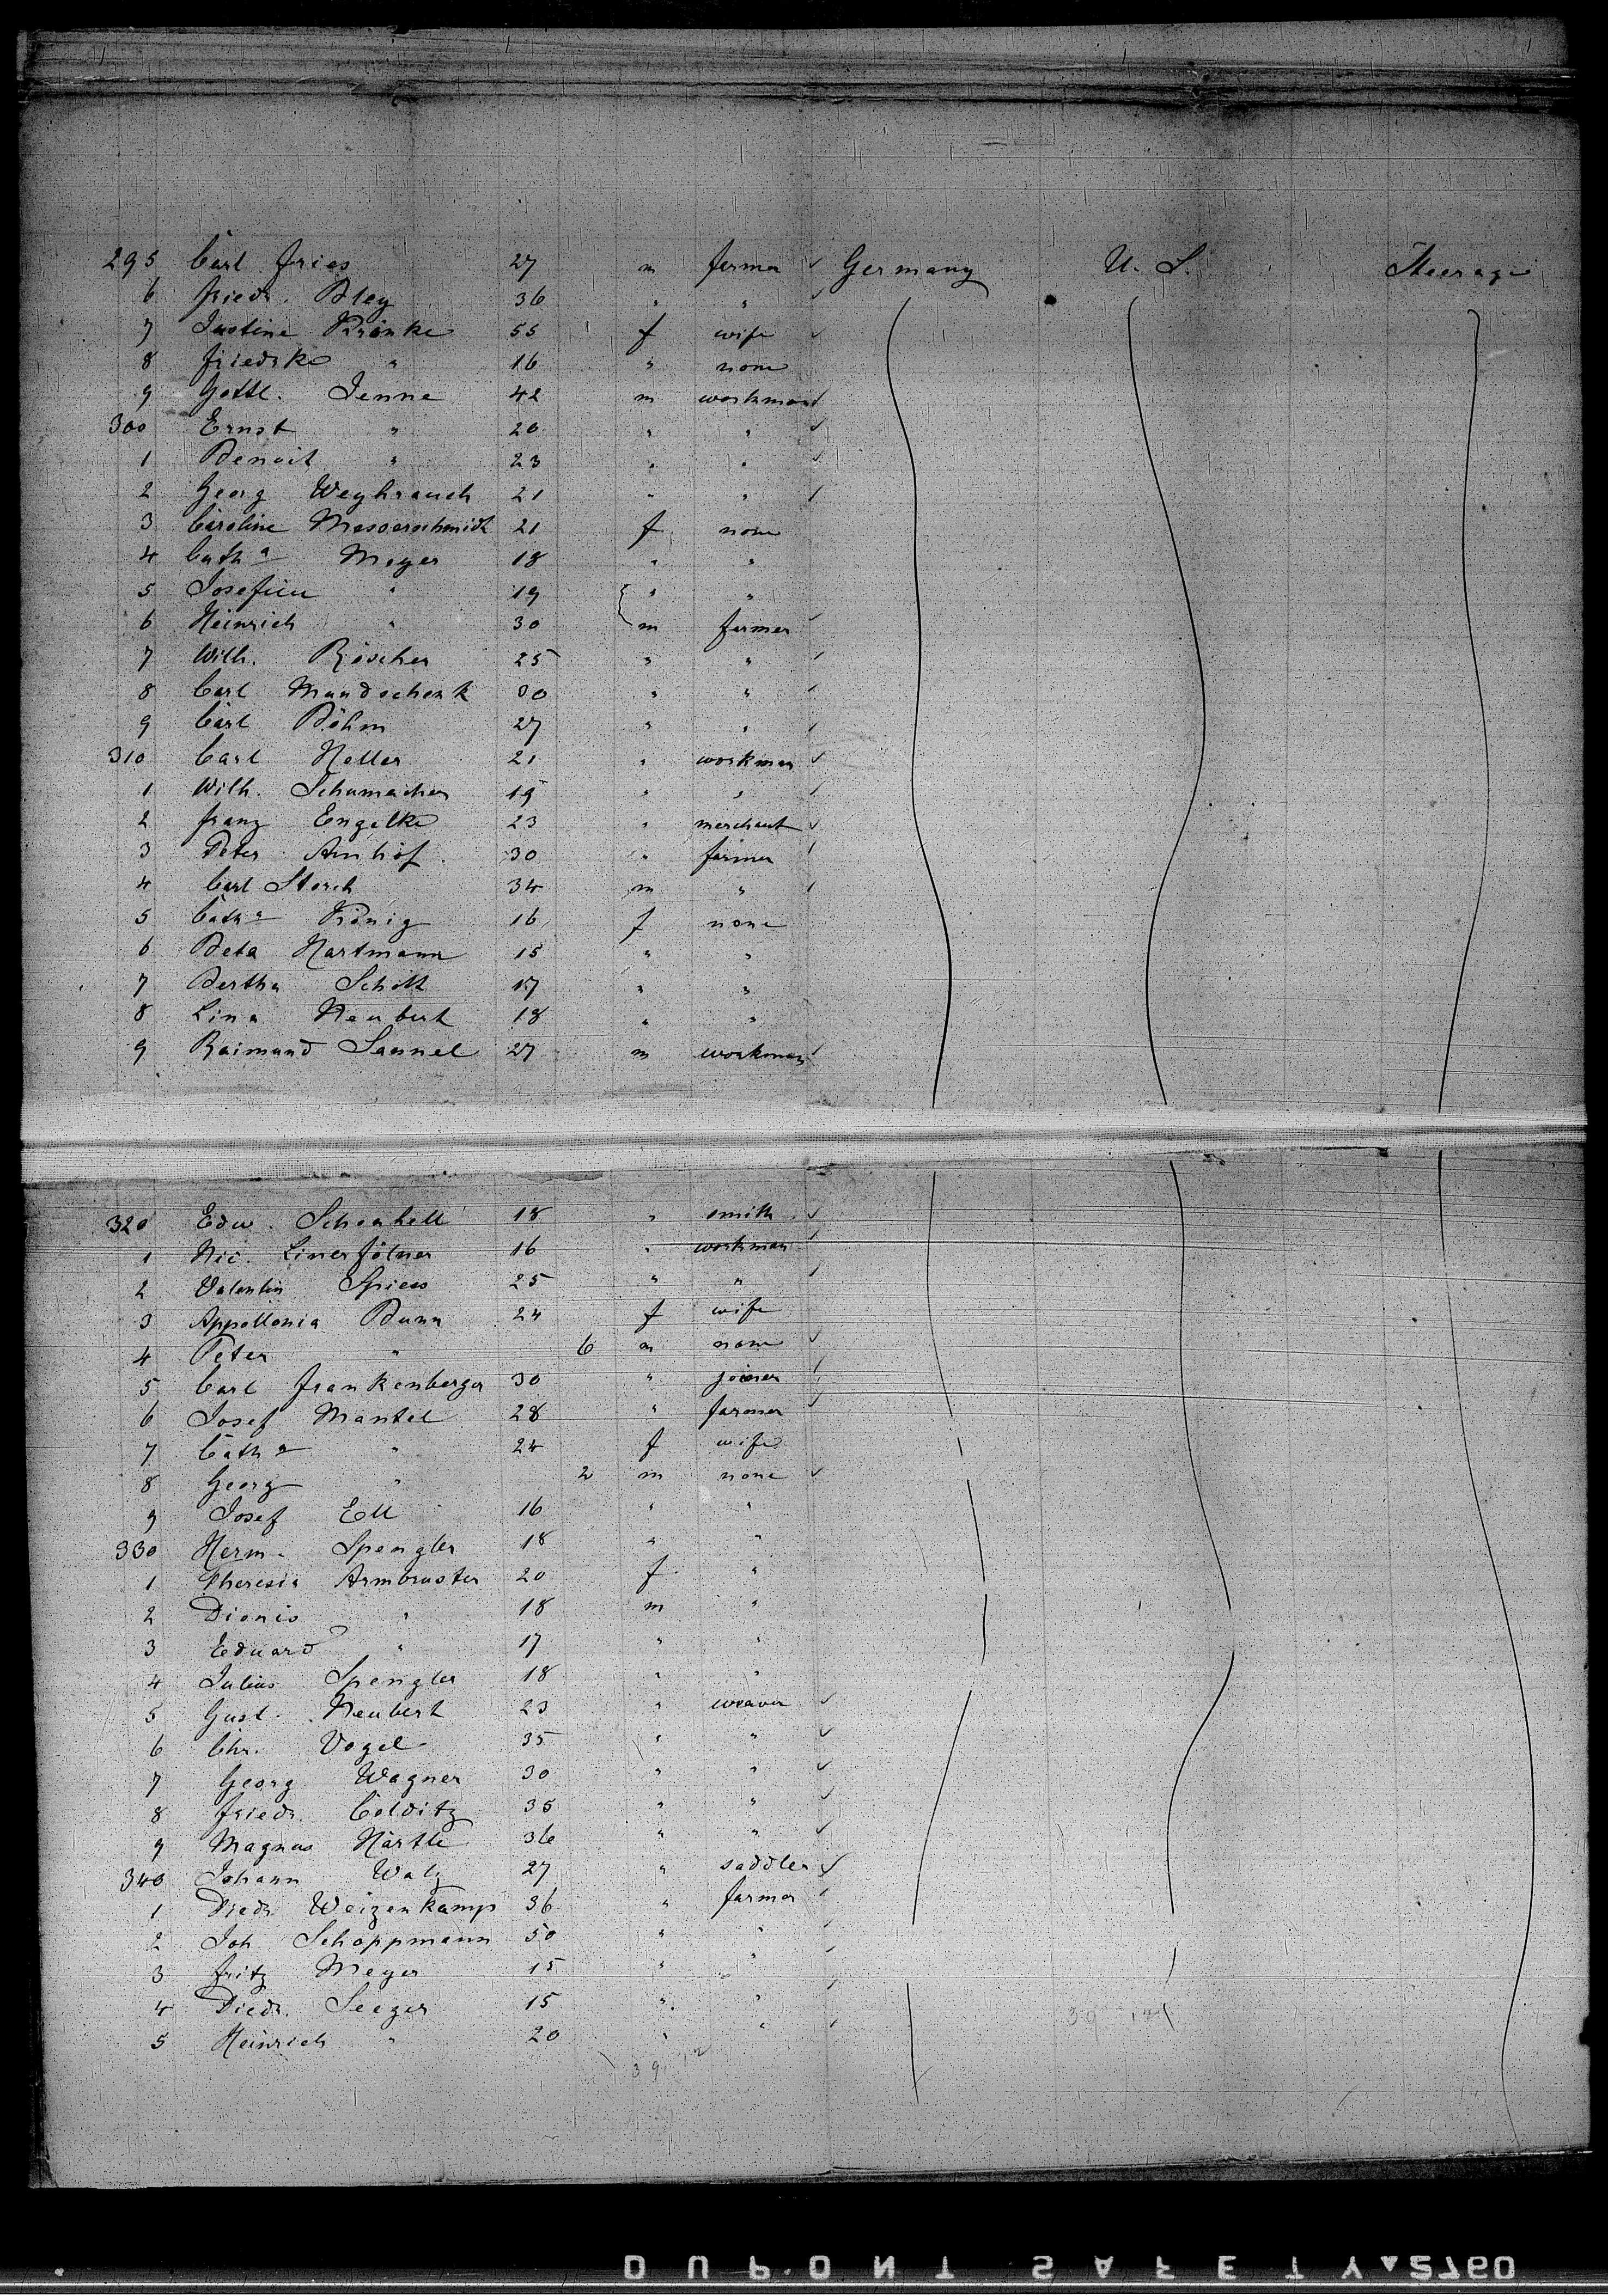 295 Carl Fries 27 m farmer Germany U. S. Steerage
6 Friedr. Bley 36 " "
7 Justine Krönke 55 f wife
8 Friedrke " 16 " none
9 Gottl. Jenne 42 m workman
300 Ernst " 20 " "
1 Benoit " 23 " "
2 Georg Weyhrauch 21 " "
3 Caroline Messerschmidt 21 f none
4 Cath a Meyer 18 " "
5 Josefine " 19 " "
6 Heinrich " 30 m farmer
7 Wilh. Röscher 25 " "
8 Carl Mundschenk 30 " "
9 Carl Böhm 27 " "
310 Carl Heller 21 " workman
1 Wilh. Schumacher 19 " "
2 Franz Engelke 23 " merchant
3 Peter Amhof 30 " farmer
4 Carl Storch 34 m "
5 Cath a König 16 f none
6 Beta Hartmann 15 " "
7 Bertha Schott 17 " "
8 Lina Neubert 18 " "
9 Raimund Sannel 27 m workman
320 Edw. Schenhell 18 " smith
1 Nic. 16 " workman
2 Valentin Spiess 25 " "
3 Appollonia Bunn 24 f wife
4 Peter " 6 m none
5 Carl Frankenberger 30 " joiner
6 Josef Mantel 28 " farmer
7 Cath a " 24 f wife
8 Georg " 2 m none
9 Josef Ell 16 " "
330 Herm. Spengler 18 " "
1 Theresia Armbruster 20 f "
2 Dionis " 18 m "
3 Eduard " 17 " "
4 Julius Spengler 18 " "
5 Gust. Neubert 23 " weaver
6 Chr. Vogel 35 " "
7 Georg Wagner 30 " "
8 Friedr. Colditz 35 " "
9 Magnus Härtle 36 " "
340 Johann Walz 27 " saddler
1 Diedr. Weizenkamp 36 " farmer
2 Joh Schoppmann 50 " "
3 Fritz Meyer 15 " "
4 Diedr. Seeger 15 " "
5 Heinrich " 20 " "
39 12
39 12
DUPONT SAFETY 2760